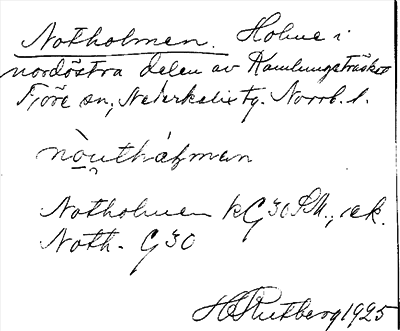 Notholmen. Holme i
nordöstra delen av Kamlungsträsket
Töre sn, Nederkalix tg. Norrb. l.
nòutháłman
Notholmen kG30 ; ek.
Noth- G30
H Rutberg 1925